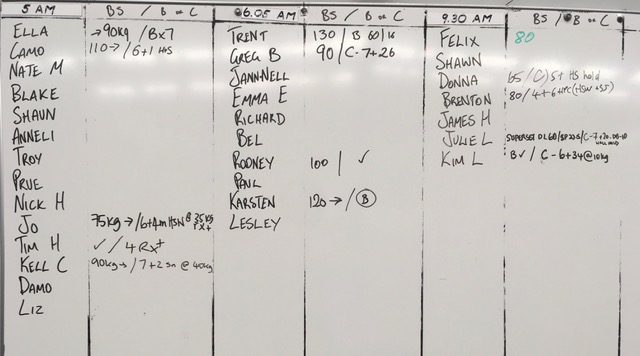 5 AM BS / B or C
ELLA →90kg / Bx7
CAMO 110→ / 6+1 Hrs
NATE M
BLAKE
SHAUN
ANNELI
TROY
PRUE
NICK H
JO 75kg→/6+4m HSN @ 35kg RX+
TIM H ✓ / 4 Rx+
KELL C 90kg→ / 7+2 sn @ 40kg
DAMO
LIZ
6.05 AM BS / B or C
TRENT 130 / B 60/16
GREG B 90 / C-7+26
JANN-NELL
EMMA E
RICHARD
BEL
RODNEY 100 / ✓
PAUL
KARSTEN 120→ / B
LESLEY
9.30 AM BS / B or C
FELIX 80
SHAWN
DONNA 65 / C) 5+ HS hold
BRENTON 80 / 4+6
JAMES H
JULIE L SUPERSET DL60/ /C-7+20
KIM L B✓ / C-6+34@10kg